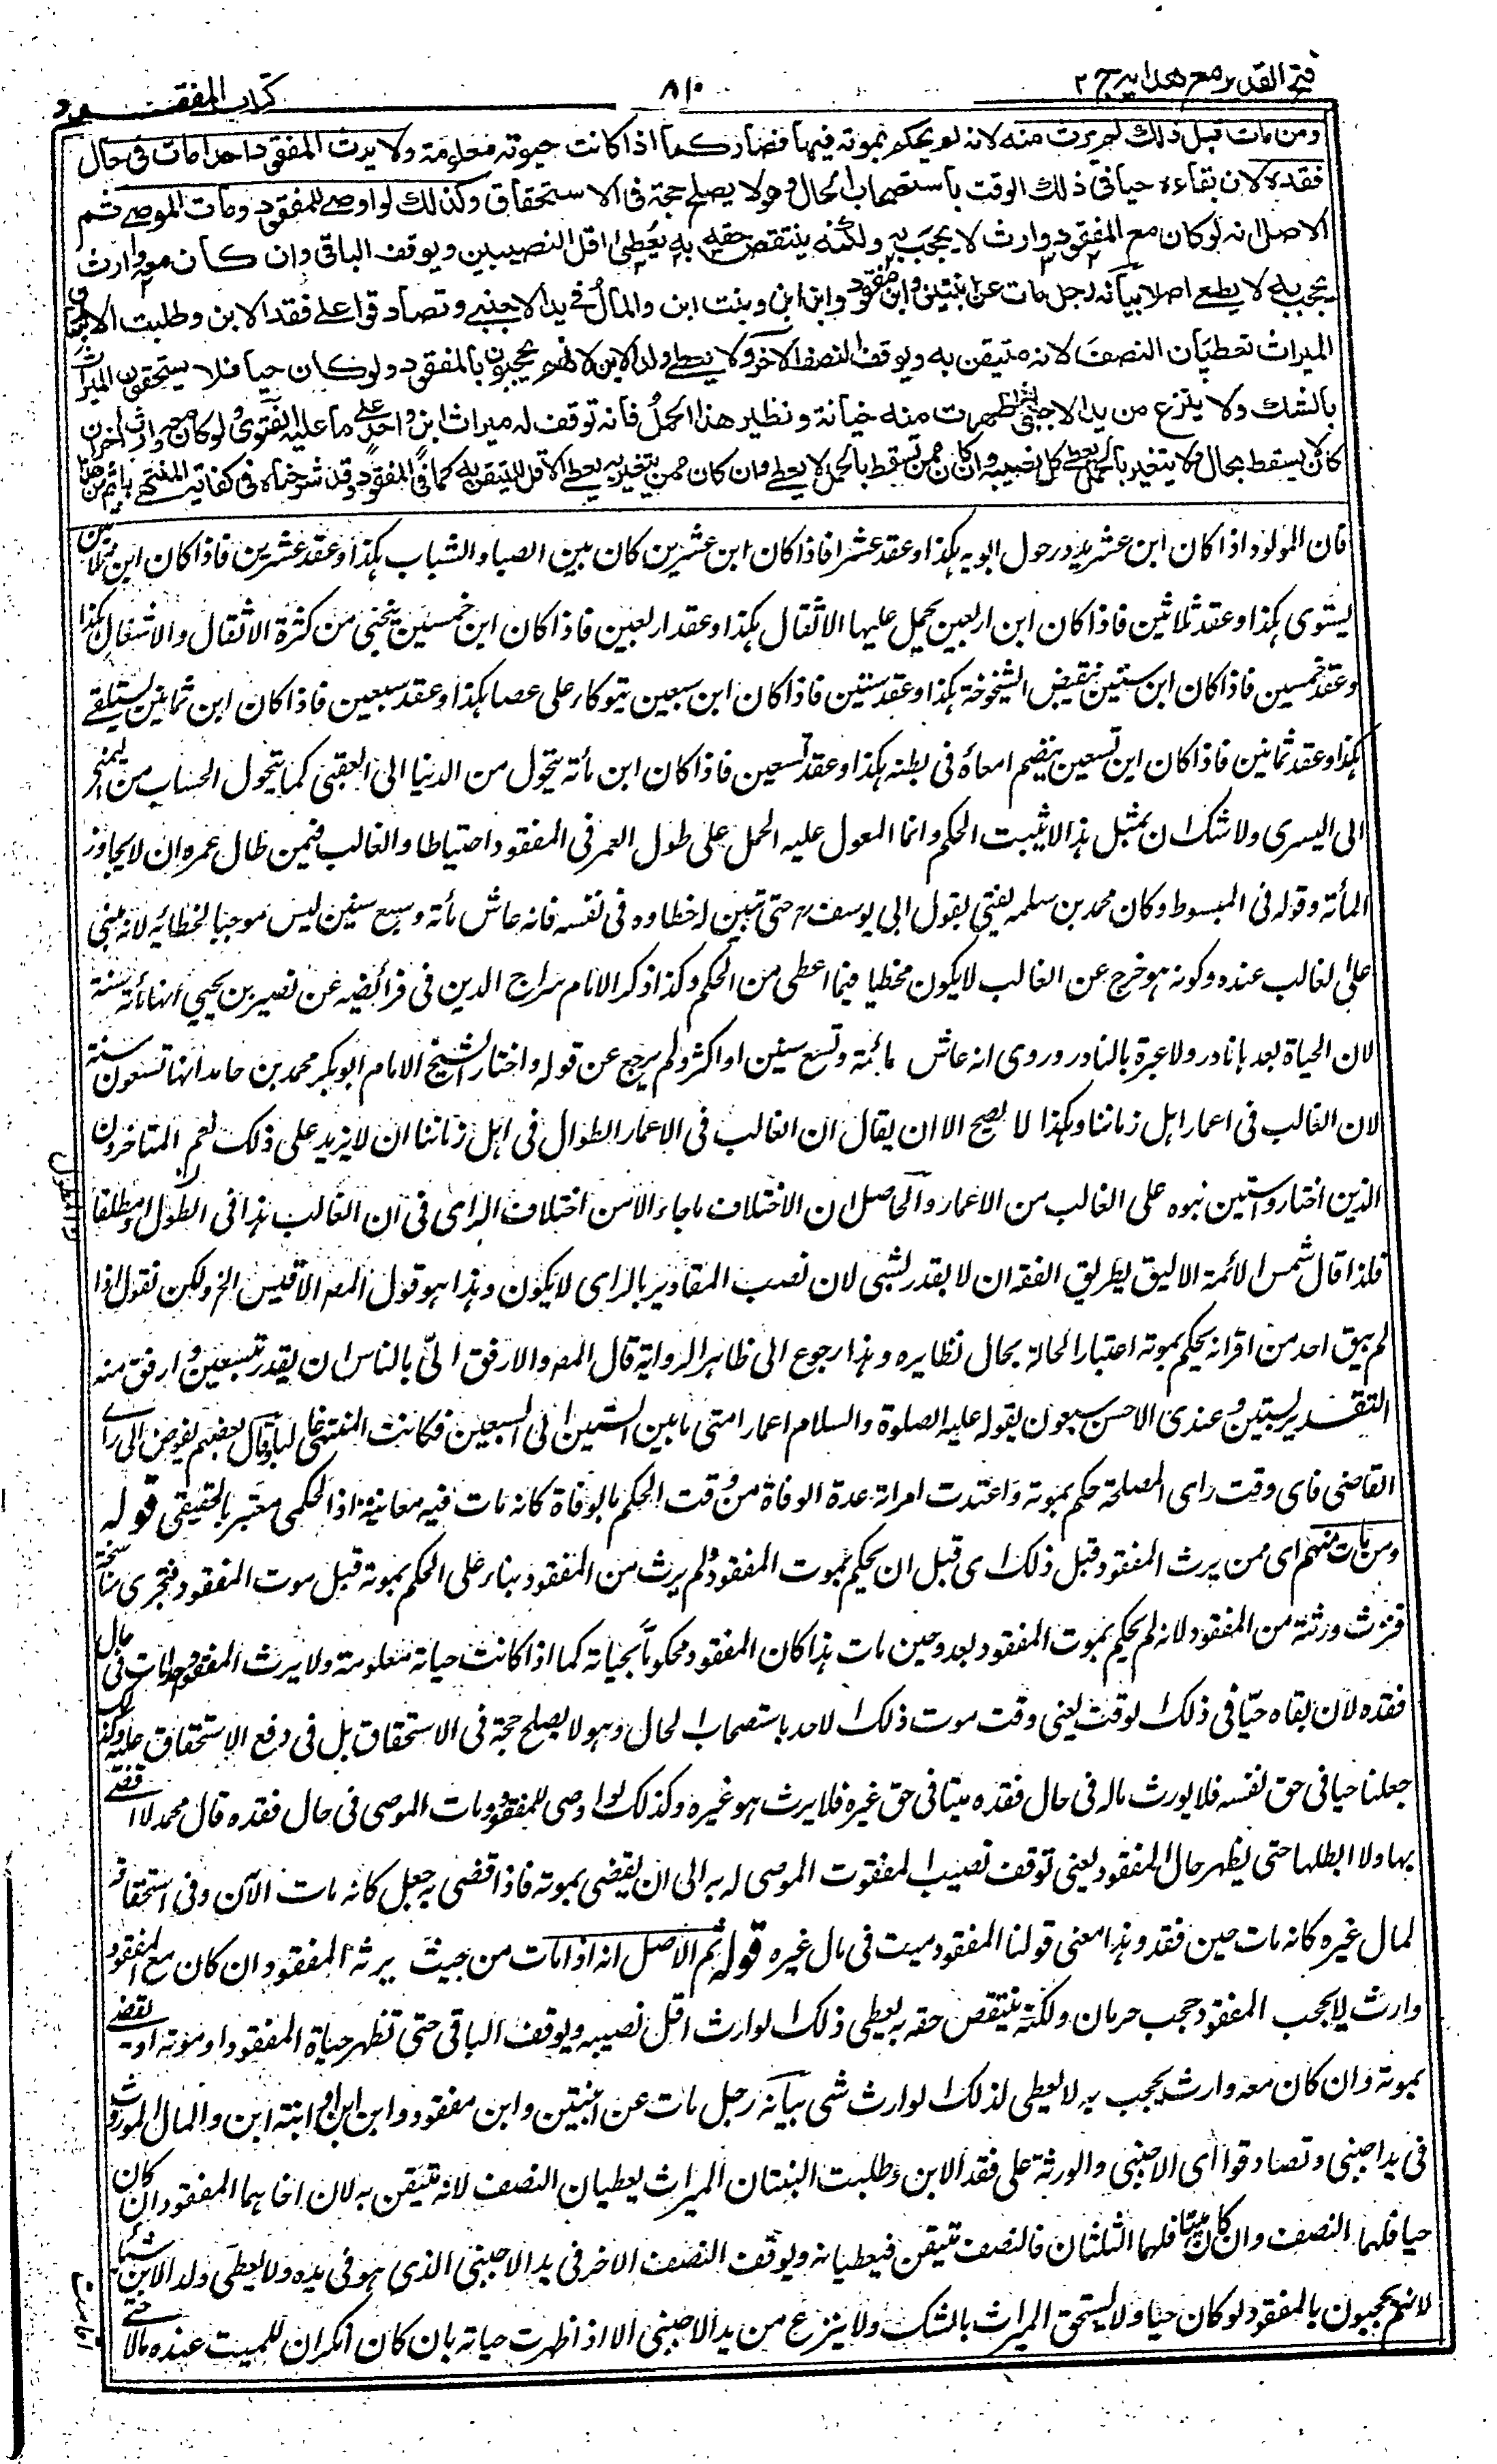 فتح القدير مع هدايه ج ٢
٨١٠
كتاب المفقود
ومن مات قبل ذلك لم يرث منه لانه لم يحكم بموته فيها فصار كما اذا كانت حيوته معلومة ولا يرث المفقود احدا مات فى حال
فقده لان بقاءه حيا فى ذلك الوقت باستصحاب الحال وهو لا يصلح حجة فى الاستحقاق وكذلك لو اوصى للمفقود ومات الموصى ثم
الاصل انه لو كان مع المفقود وارث لا يحجب به ولكنه ينتقص حقه به يعطى اقل النصيبين ويوقف الباقى وان كان معه وارث
يحجب به لا يعطى اصلا بيانه رجل مات عن ابنتين وابن مفقود وابن ابن وبنت ابن والمال فى يد الاجنبى وتصادقوا على فقد الابن وطلبت الابنتان
الميراث تعطيان النصف لانه متيقن به ويوقف النصف الآخر ولا يعطى ولد الابن لانهم يحجبون بالمفقود ولو كان حيا فلا يستحقون الميراث
بالشك ولا ينزع من يد الاجنبى الا اذا ظهرت منه خيانة ونظير هذا الحمل فانه توقف له ميراث ابن واحد على ما عليه الفتوى ولو كان معه وارث آخر ان
كان لا يسقط بحال ولا يتغير بالحمل يعطى كل نصيبه وان كان ممن يسقط بالحمل لا يعطى وان كان ممن يتغير به يعطى الاقل للتيقن به كما فى المفقود وقد شرحناه فى كفاية المنتهى باتم من هذا
فان المولود اذا كان ابن عشر يدور حول ابويه هكذا وعقد عشرا فاذا كان ابن عشرين كان بين الصبا والشباب هكذا وعقد عشرين فاذا كان ابن ثلاثين
يستوى هكذا وعقد ثلاثين فاذا كان ابن اربعين يحمل عليها الاثقال هكذا وعقد اربعين فاذا كان ابن خمسين ينحنى من كثرة الاثقال والاشغال هكذا
وعقد خمسين فاذا كان ابن ستين ينقبض الشيخوخة هكذا وعقد ستين فاذا كان ابن سبعين يتوكاء على عصا هكذا وعقد سبعين فاذا كان ابن ثمانين يستلقى
هكذا وعقد ثمانين فاذا كان ابن تسعين ينضم امعاؤه فى بطنه هكذا وعقد تسعين فاذا كان ابن مأته يتحول من الدنيا الى العقبى كما يتحول الحساب من اليمنى
الى اليسرى ولا شك ان بمثل هذا لا يثبت الحكم وانما المعول عليه الحمل على طول العمر فى المفقود احتياطا والغالب فيمن طال عمره ان لا يجاوز
المأته وقوله فى المبسوط وكان محمد بن سلمه يفتى بقول ابى يوسف رح حتى تبين له خطاؤه فى نفسه فانه عاش مأته وسبع سنين ليس موجبا لخطائه لانه مبنى
على الغالب عنده وكونه هو خرج عن الغالب لا يكون مخطيا فيما اعطى من الحكم وكذا ذكر الامام سراج الدين فى فرائضه عن نصير بن يحيى انها مأته سنة
لان الحياة بعدها نادر ولا عبرة بالنادر وروى انه عاش مائة وتسع سنين او اكثر ولم يرجع عن قوله واختار الشيخ الامام ابوبكر محمد بن حامد انها تسعون سنة
لان الغالب فى اعمار اهل زماننا وهكذا لا يصح الا ان يقال ان الغالب فى الاعمار الطوال فى اهل زماننا ان لا يزيد على ذلك نعم المتاخرون
الذين اختاروا ستين بنوه على الغالب من الاعمار والحاصل ان الاختلاف ما جاء الا من اختلاف الراى فى ان الغالب هذا فى الطول او مطلقا
فلذا قال شمس الائمة الاليق بطريق الفقه ان لا يقدر بشئ لان نصب المقادير بالراى لا يكون وهذا هو قول المصـ الاقيس الخ ولكن نقول اذا
لم يبق احد من اقرانه يحكم بموته اعتبارا لحاله بحال نظايره وهذا رجوع الى ظاهر الرواية قال المصـ والارفق اى بالناس ان يقدر بتسعين وارفق منه
التقدير بستين وعندى الاحسن سبعون لقوله عليه الصلوة والسلام اعمار امتى ما بين الستين الى السبعين فكانت المنتهى غالبا وقال بعضهم يفوض الى راى
القاضى فاى وقت راى المصلحة حكم بموته واعتدت امراته عدة الوفاة من وقت الحكم بالوفاة كانه مات فيه معاينة اذ الحكمى معتبر بالحقيقى قوله
ومن مات منهم اى ممن يرث المفقود قبل ذلك اى قبل ان يحكم بموت المفقود لم يرث من المفقود بناء على الحكم بموته قبل موت المفقود فتجرى مناسخة
فترث ورثته من المفقود لانه لم يحكم بموت المفقود بعد وحين مات هذا كان المفقود محكوما بحياته كما اذا كانت حياته معلومة ولا يرث المفقود احدا مات فى حال
فقده لان بقاه حيّا فى ذلك الوقت يعنى وقت موت ذلك الاحد باستصحاب الحال وهو لا يصلح حجة فى الاستحقاق بل فى دفع الاستحقاق عليه وكذلك
جعلنا حيا فى حق نفسه فلا يورث ماله فى حال فقده ميتا فى حق غيره فلا يرث هو غيره وكذلك لو اوصى للمفقود ومات الموصى فى حال فقده قال محمد لا اقضى
بها ولا ابطلها حتى يظهر حال المفقود يعنى توقف نصيب المفقود الموصى له به الى ان يقضى بموته فاذا قضى به جعل كانه مات الآن وفى استحقاقه
لمال غيره كانه مات حين فقد وهذا معنى قولنا المفقود ميت فى مال غيره قوله ثم الاصل انه اذا مات من حيث يرثه المفقود ان كان مع المفقود
وارث لا يحجب المفقود حجب حرمان ولكنه ينتقص حقه به يعطى ذلك الوارث اقل نصيبه ويوقف الباقى حتى تظهر حياة المفقود او موته او يقضى
بموته وان كان معه وارث يحجب به لا يعطى لذلك الوارث شئ بيانه رجل مات عن ابنتين وابن مفقود وابن ابن او ابنة ابن والمال الموروث
فى يد اجنبى وتصادقوا اى الاجنبى والورثة على فقد الابن وطلبت البنتان الميراث يعطيان النصف لانه متيقن به لان اخاهما المفقود ان كان
حيا فلهما النصف وان كان ميتا فلهما الثلثان فالنصف متيقن فيعطيانه ويوقف النصف الاخر فى يد الاجنبى الذى هو فى يده ولا يعطى ولد الابن شيئا
لانهم يحجبون بالمفقود لو كان حيا ولا يستحق الميراث بالشك ولا ينزع من يد الاجنبى الا اذا ظهرت خيانته بان كان انكر ان للميت عنده مالا حتى